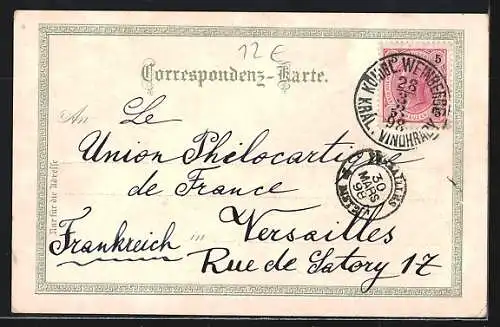 12 €
Correspondenz-Karte.
5
KÖNIGL. WEINBERGE
KRÁL. VINOHRADY
An
Le
Union Philocartique
de France
Nur für die Adresse
in
Frankreich Versailles
Rue de Satory 17
VERSAILLES
30
MARS
98